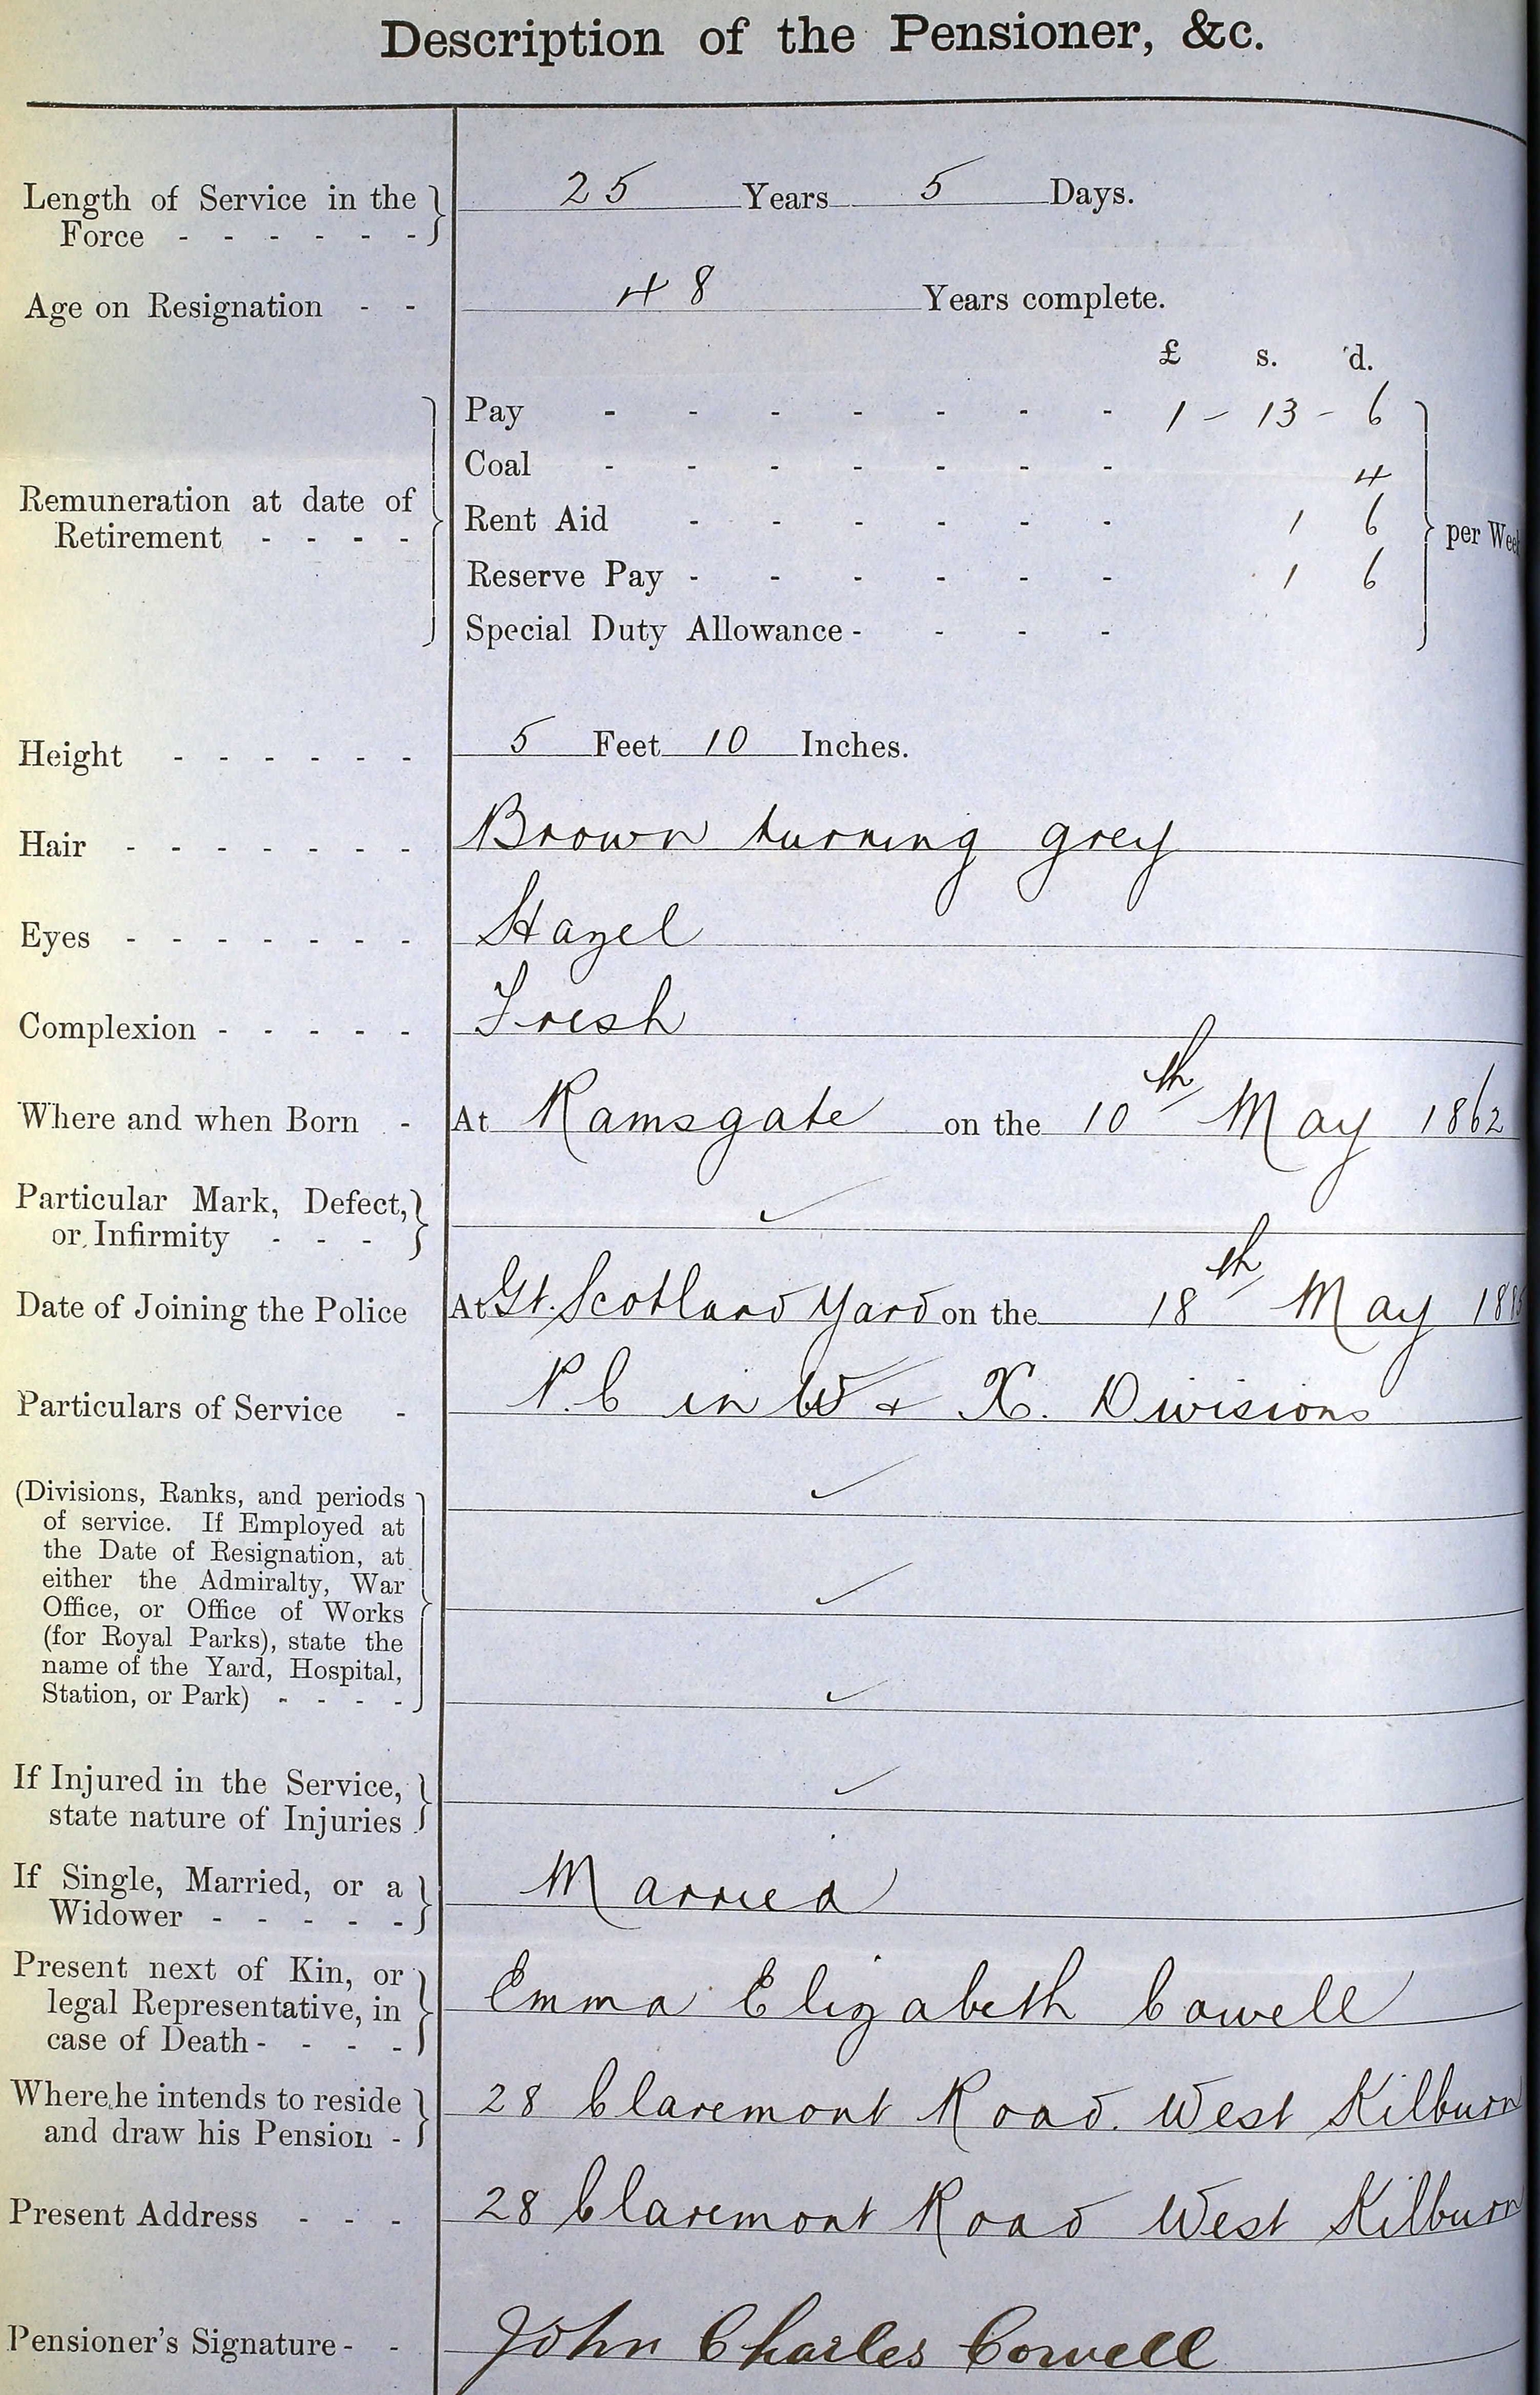 Description of the Pensioner, &c.
Length of Service in the Force - - - - - - 25 Years 5 Days.
Age on Resignation - - 48 Years complete.
£ s. d.
Remuneration at date of Retirement - - - -
Pay - - - - - - - 1 - 13 - 6
Coal - - - - - - - 4
Rent Aid - - - - - - 1 6
Reserve Pay - - - - - - 1 6
Special Duty Allowance - - - -
per Week
Height - - - - - - 5 Feet 10 Inches.
Hair - - - - - - - Brown turning grey
Eyes - - - - - - - Hazel
Complexion - - - - - Fresh
Where and when Born - At Ramsgate on the 10th May 1862
Particular Mark, Defect, or Infirmity - - - ✓
Date of Joining the Police At Gt. Scotland Yard on the 18th May
Particulars of Service - P.C in W & X. Divisions
(Divisions, Ranks, and periods ✓
of service. If Employed at
the Date of Resignation, at
either the Admiralty, War ✓
Office, or Office of Works
(for Royal Parks), state the
name of the Yard, Hospital,
Station, or Park) - - - - ✓
If Injured in the Service, state nature of Injuries ✓
If Single, Married, or a Widower - - - - - Married
Present next of Kin, or legal Representative, in case of Death - - - - Emma Elizabeth Cowell
Where he intends to reside and draw his Pension - 28 Claremont Road. West Kilburn
Present Address - - - 28 Claremont Road West Kilburn
Pensioner's Signature - - John Charles Cowell